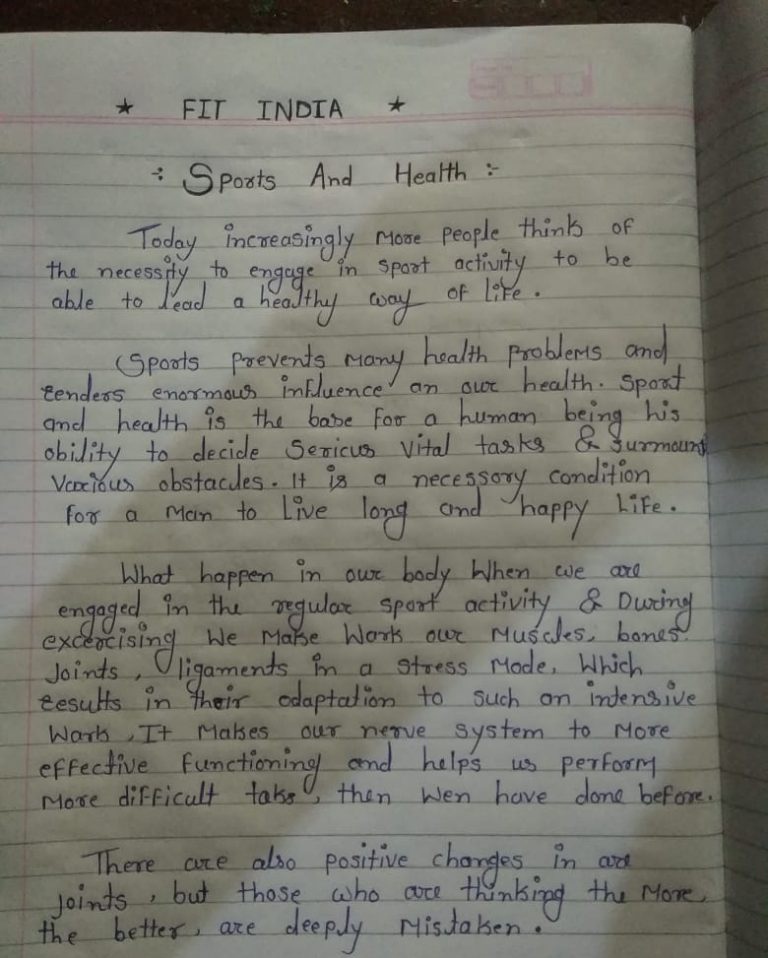 * FIT INDIA *
÷ Sports And Health :-
Today increasingly more people think of
the necessity to engage in sport activity to be
able to lead a healthy way of life.
Sports prevents many health problems and
renders enormous influence on our health. Sport
and health is the base for a human being his
ability to decide serious vital tasks & surmount
various obstacles. It is a necessary condition
for a man to live long and happy life.
What happen in our body when we are
engaged in the regular sport activity & During
excercising we make work our muscles, bones
joints, ligaments in a stress mode, which
results in their adaptation to such an intensive
work, It makes our nerve system to more
effective functioning and helps us perform
more difficult taks, then wen have done before.
There are also positive changes in are
joints, but those who are thinking the more,
the better, are deeply mistaken.